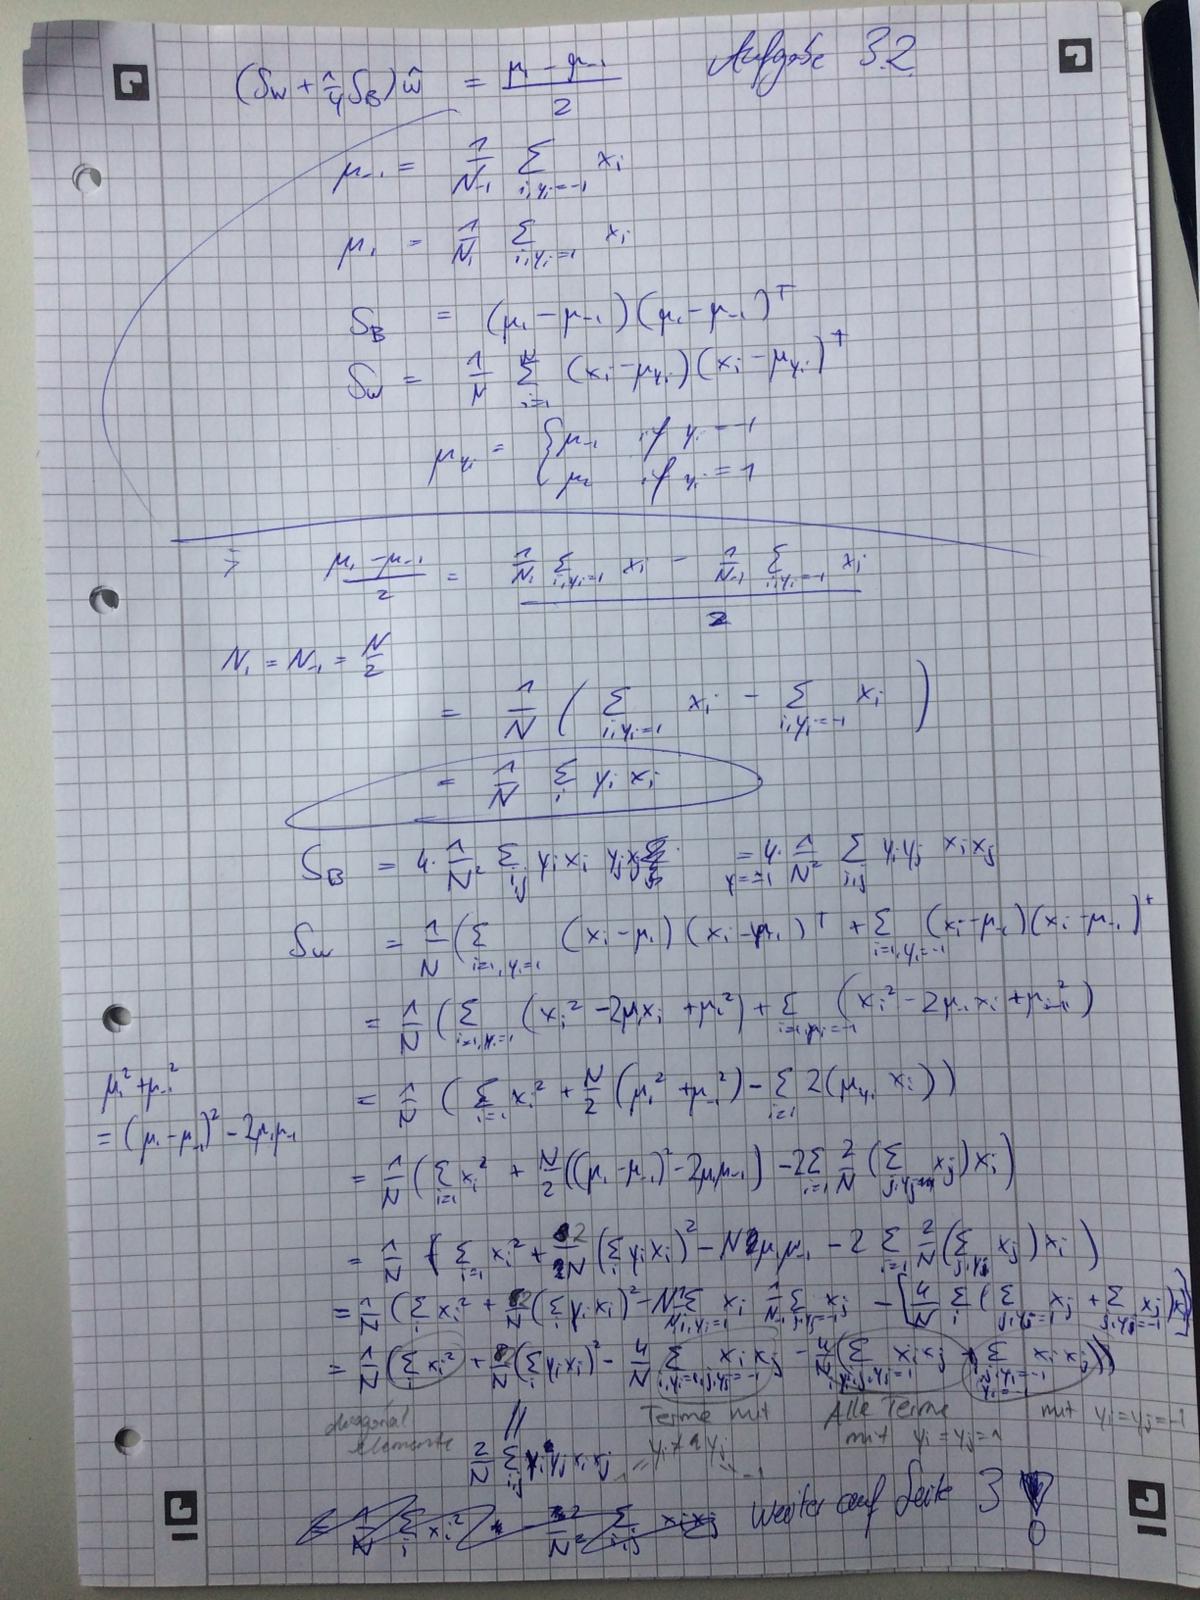 Aufgabe 3.2
(S_W + 1/4 S_B) ŵ = (μ_1 - μ_-1)/2
μ_-1 = 1/N_-1 Σ_{i,y_i=-1} x_i
μ_1 = 1/N_1 Σ_{i,y_i=1} x_i
S_B = (μ_1 - μ_-1)(μ_1 - μ_-1)^T
S_W = 1/N Σ_{i=1}^N (x_i - μ_{y_i})(x_i - μ_{y_i})^T
μ_{y_i} = { μ_-1 if y_i = -1
μ_2 if y_i = 1
⇒ (μ_1 - μ_-1)/2 = (1/N_1 Σ_{i,y_i=1} x_i - 1/N_-1 Σ_{i,y_i=-1} x_i)/2
N_1 = N_-1 = N/2
= 1/N ( Σ_{i,y_i=1} x_i - Σ_{i,y_i=-1} x_i )
= 1/N Σ_i y_i x_i
S_B = 4 · 1/N² Σ_{i,j} y_i x_i y_j x_j = 4 · 1/N² Σ_{i,j} y_i y_j x_i x_j
S_W = 1/N ( Σ_{i=1,y_i=1} (x_i - μ_1)(x_i - μ_1)^T + Σ_{i=1,y_i=-1} (x_i - μ_-1)(x_i - μ_-1)^T
= 1/N ( Σ_{i=1,y_i=1} (x_i² - 2μ_1x_i + μ_1²) + Σ_{i=1,y_i=-1} (x_i² - 2μ_-1 x_i + μ_-1²)
μ_1² + μ_-1²
= (μ_1 - μ_-1)² - 2μ_1μ_-1
= 1/N ( Σ_{i=1} x_i² + N/2 (μ_1² + μ_-1²) - Σ_{i=1} 2(μ_{y_i} x_i))
= 1/N ( Σ_{i=1} x_i² + N/2 ((μ_1 - μ_-1)² - 2μ_1μ_-1) - 2Σ_{i=1} 2/N ( Σ x_j) x_i)
= 1/N ( Σ_{i=1} x_i² + 2/N (Σ_i y_i x_i)² - N μ_1μ_-1 - 2 Σ_{i=1} 2/N ( Σ x_j) x_i )
= 1/N ( Σ_i x_i² + 2/N (Σ_i y_i x_i)² - Σ_{i,y_i=1} x_i Σ_{j,y_j=-1} x_j - [4/N Σ_i ( Σ_{j,y_j=1} x_j + Σ_{j,y_j=-1} x_j) x_i]
= 1/N ( Σ_i x_i² + 2/N (Σ_i y_i x_i)² - 4/N Σ_{i,y_i=1,j,y_j=-1} x_i x_j - 4/N ( Σ_{i,y_i,j,y_j=1} x_i x_j + Σ x_i x_j))
diagonal Elemente
Terme mit y_i ≠ y_j
Alle Terme mit y_i = y_j = 1
mit y_i = y_j = -1
2/N Σ_{i,j} y_i y_j x_i x_j
Weiter auf Seite 3 !